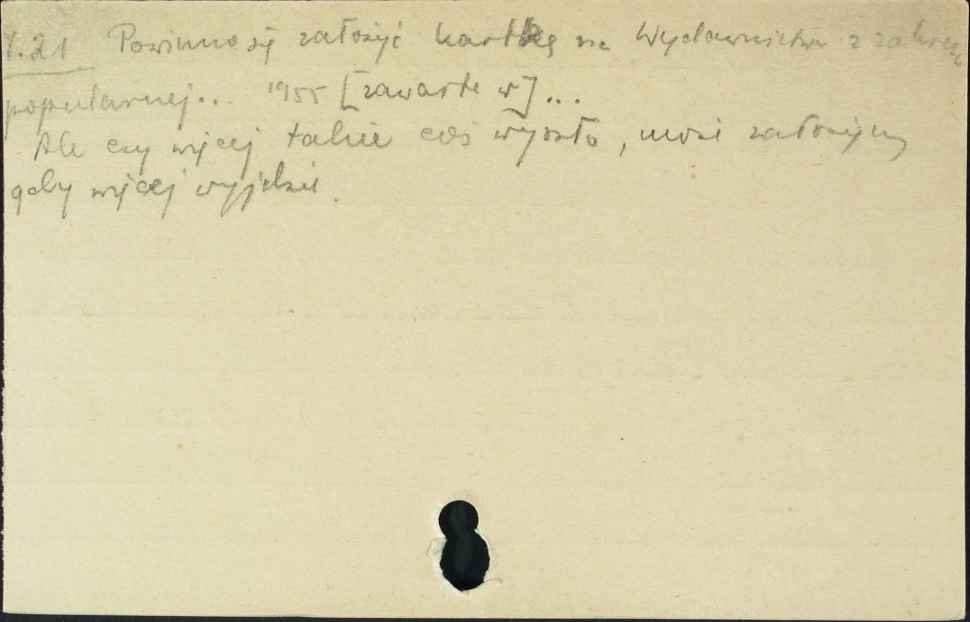 1.21 Powinno się założyć kartkę na Wydawnictwa z zakresu
popularnej... 1955 [zawarte w]...
Ale czy więcej takie coś wyszło, może założymy
gdy więcej wyjdzie.